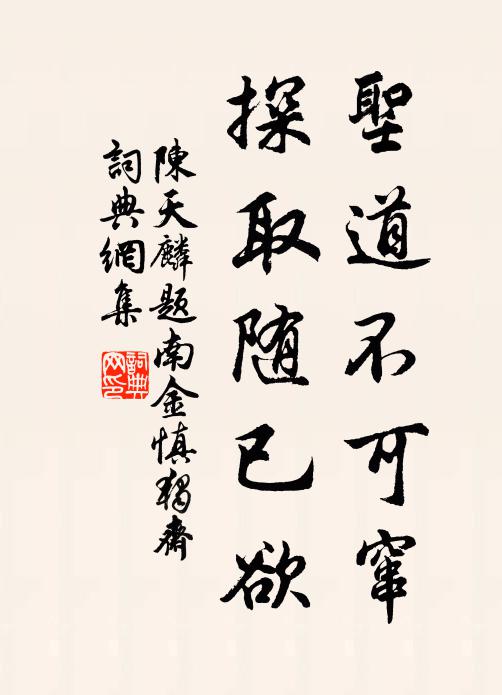 聖道不可窜
探取随已欲
陳天麟題南金慎獨齋
詞典網集
詞典网印